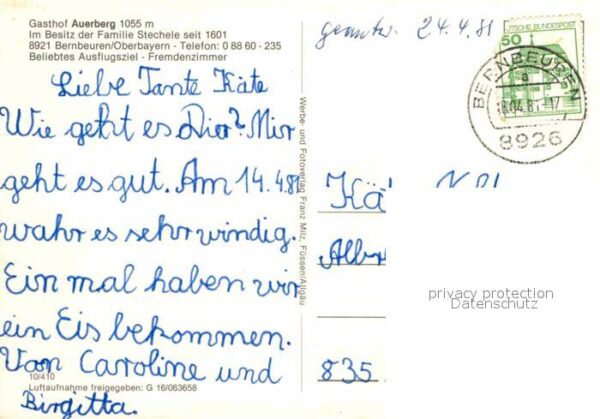 Gasthof Auerberg 1055 m
Im Besitz der Familie Stechele seit 1601
8921 Bernbeuren/Oberbayern - Telefon: 0 88 60 - 235
Beliebtes Ausflugsziel - Fremdenzimmer
Liebe Tante Käte
Wie geht es Dir? Mir
geht es gut. Am 14.4.81
wahr es sehr windig.
Ein mal haben wir
ein Eis bekommen.
Von Caroline und
10/410
Luftaufnahme freigegeben: G 16/063658
Birgitta.
Werbe- und Fotoverlag Franz Milz, Füssen/Allgäu
geantw. 24.4.81
50
DEUTSCHE BUNDESPOST
BERNBEUREN
a
.04.81-17
8926
Kä
Alber
835
privacy protection
Datenschutz